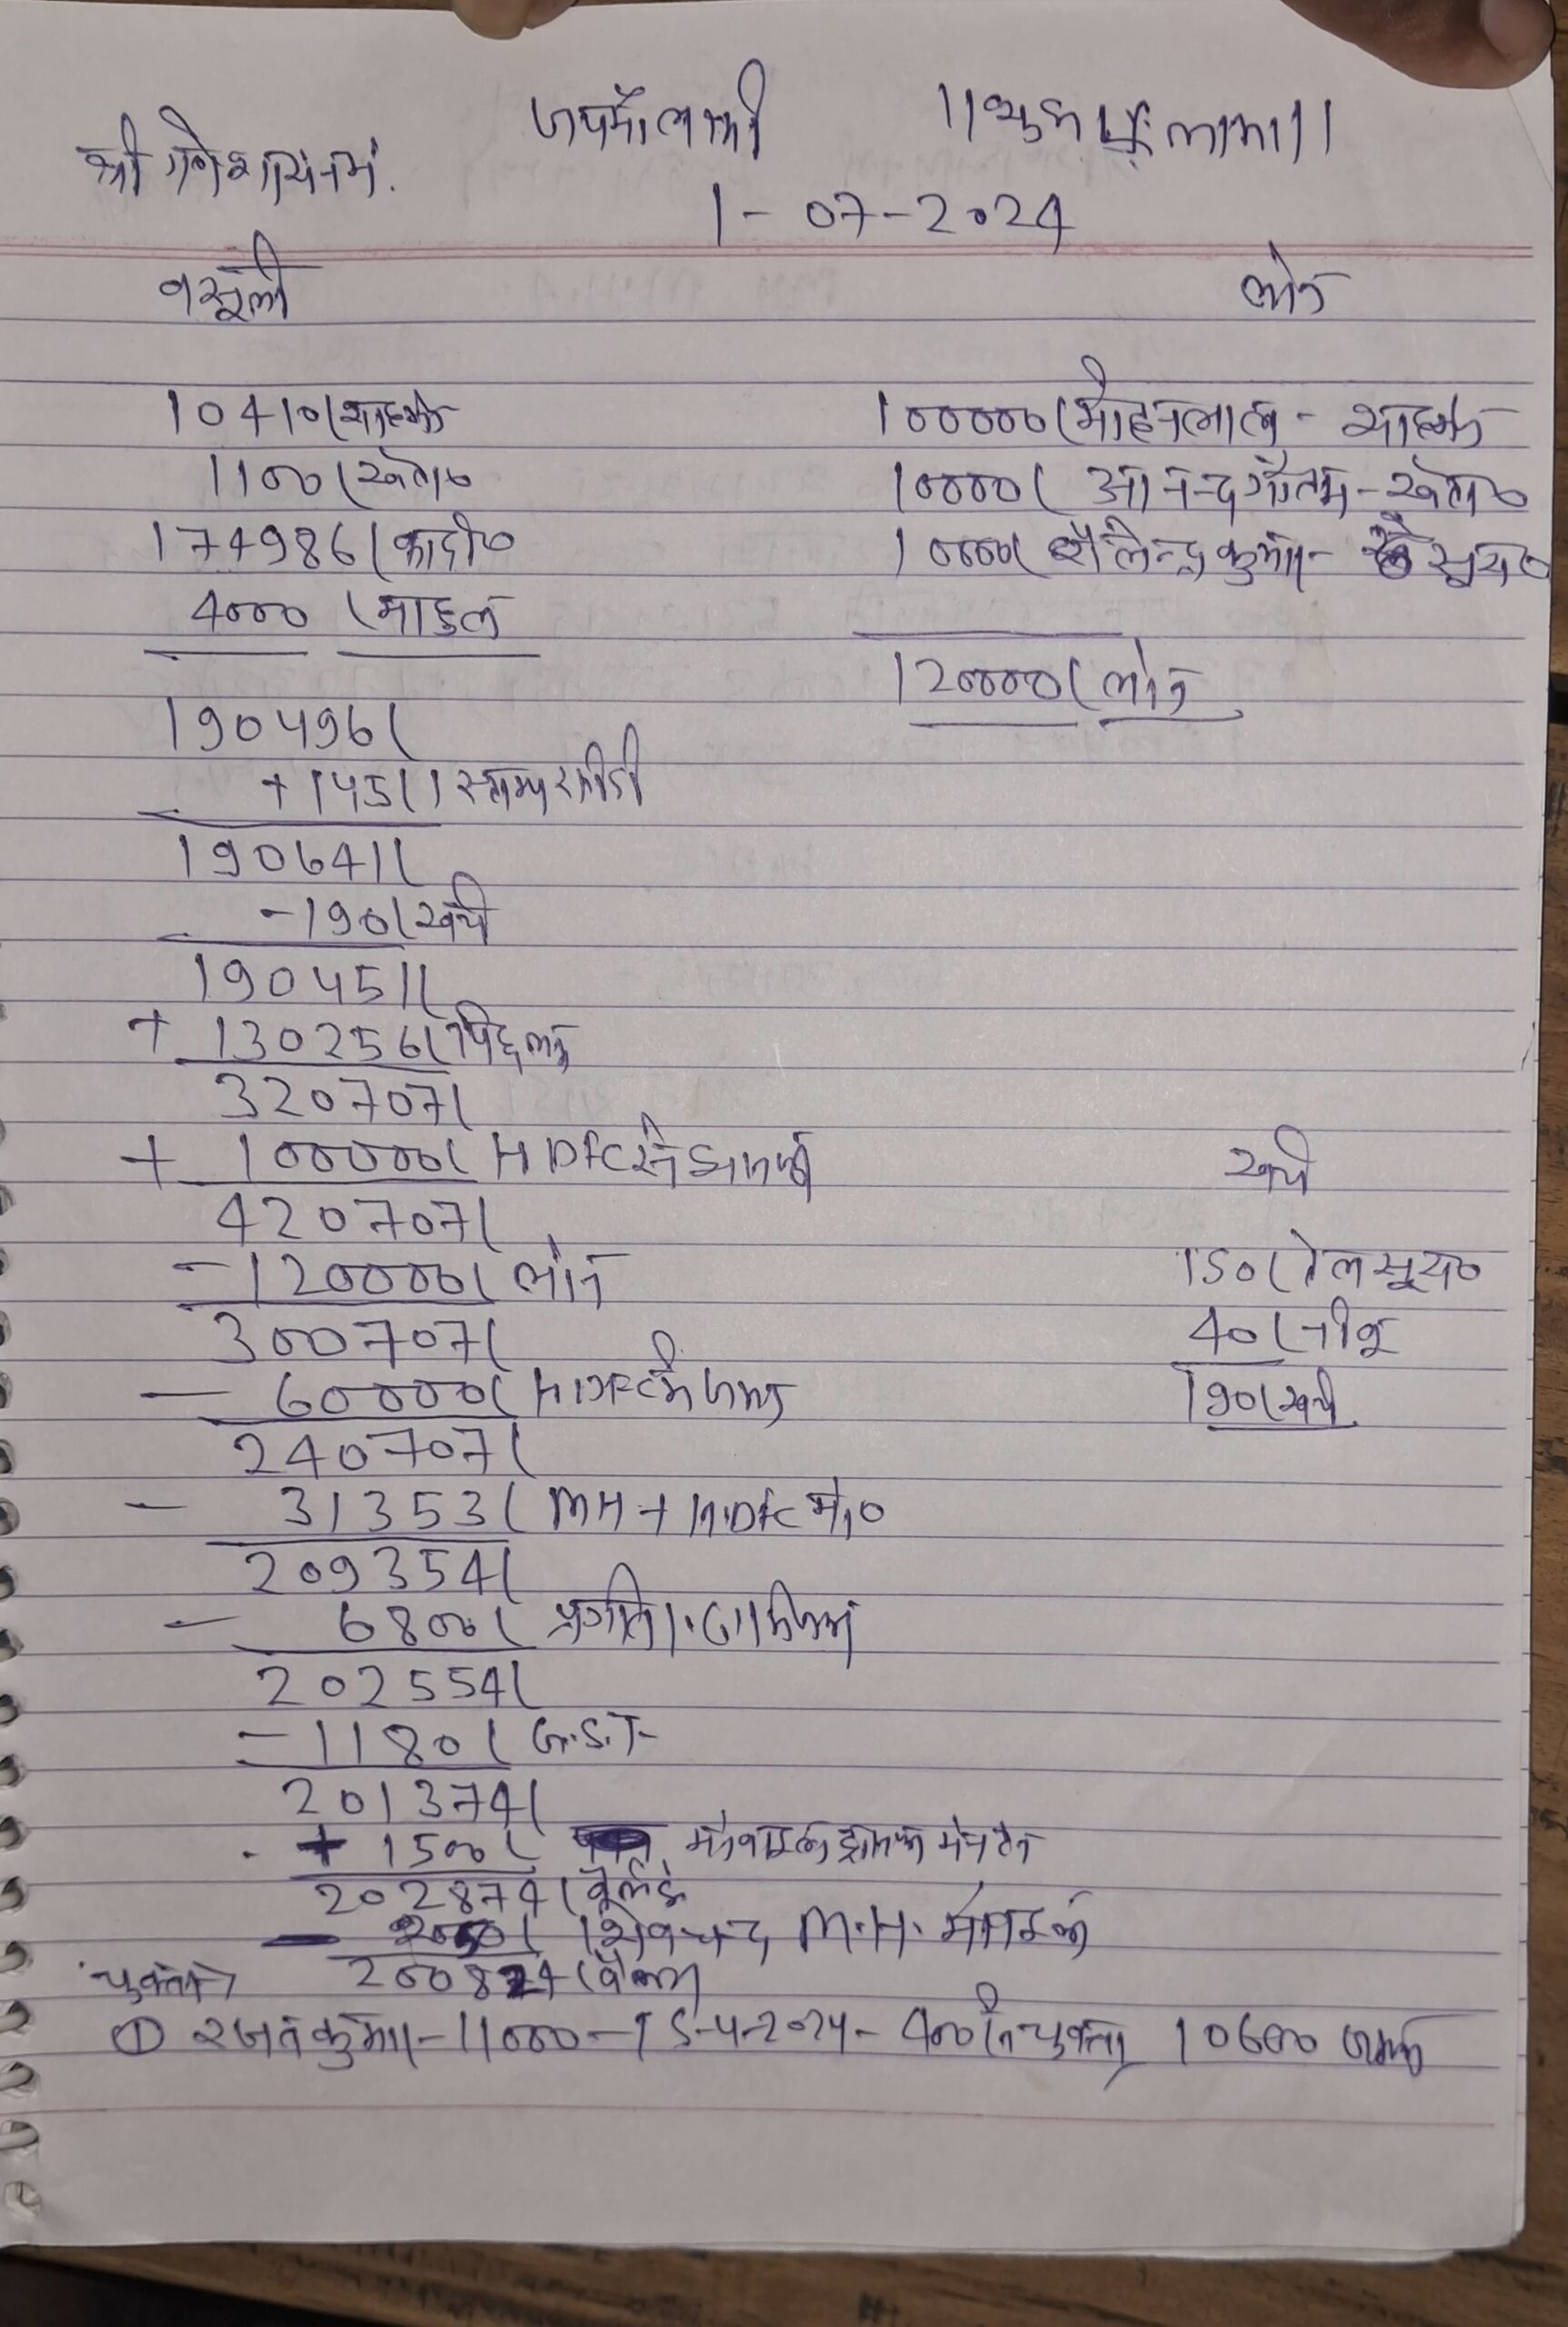 श्री गणेशाय नमः जय माँ लक्ष्मी ||शुभ 卐 लाभ||
1-07-2024
वसूली लोन
10410/
1100/ खेता०
174986/ कादी०
4000/ माहुल
190496/
+145/ स्टाम्प
190641/
-190/ खर्चा
190451/
+ 130256/ पिछला
320707/
+ 100000/ HDFC से
420707/
-120000/ लोन
300707/
- 60000/ HDFC में जमा
240707/
- 31353/ MH + HDFC में
209354/
- 6800/ प्रगति
202554/
-1180/ G.S.T-
201374/
+ 1500/
202874/
- 2050/ शिवचन्द M.H.
200824/
100000/ मोहनलाल -
10000/ आनन्द गौतम - खेता०
10000/ शैलेन्द्र कुमार - सूर्या०
120000/ लोन
खर्चा
150/ तेल सूर्या०
40/ नींबू
190/ खर्चा
चुकता→
① रजत कुमार-11000-15-4-2024- 400 चुकता 10600 जमा